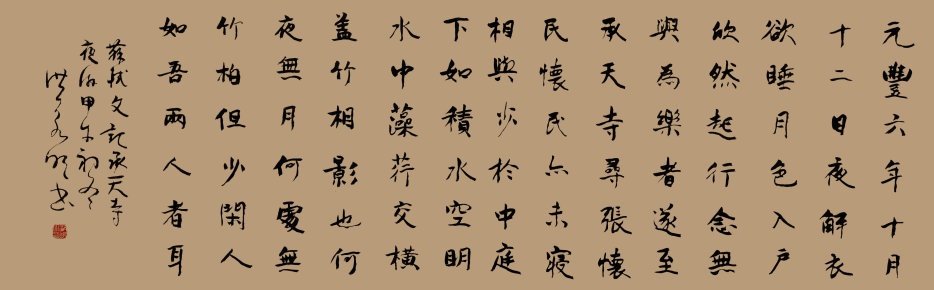 元豐六年十月
十二日夜解衣
欲睡月色入戶
欣然起行念無
與為樂者遂至
承天寺尋張懷
民懷民亦未寢
相與步於中庭
下如積水空明
水中藻荇交橫
盖竹相影也何
夜無月何處無
竹柏但少閑人
如吾兩人者耳
蘇軾文記承天寺
夜游甲午初冬
洪書